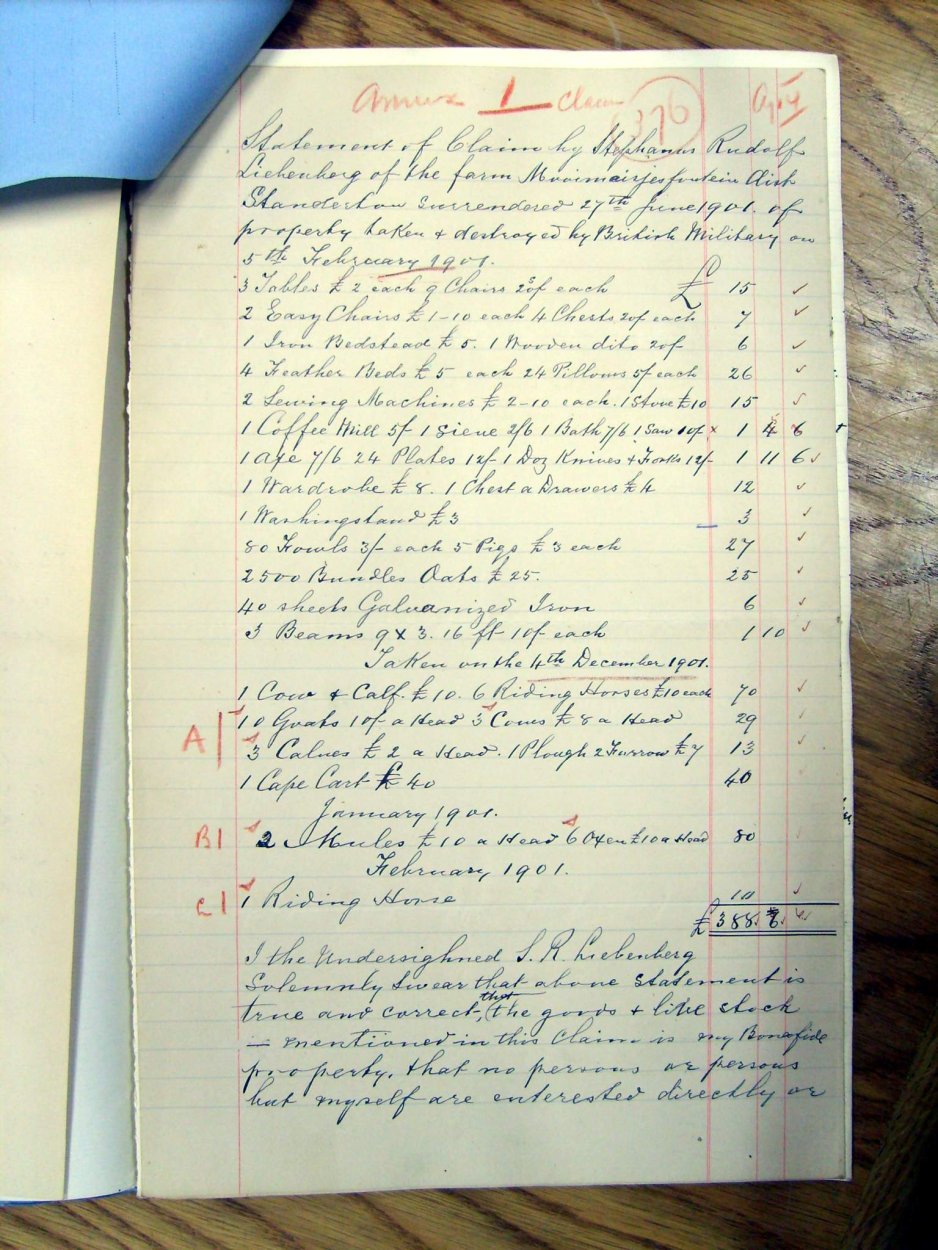 Annex 1 Claim 376
Statement of Claim by Stephanus Rudolf
Liebenberg of the farm Mooimeisjesfontein Dist
Standerton Surrendered 27th June 1901. of
property taken & destroyed by British Military on
5th February 1901.
3 Tables £2 each 9 Chairs 20/- each £ 15
2 Easy Chairs £1-10 each 4 Chests 20/- each 7
1 Iron Bedstead £5. 1 Wooden dito 20/- 6
4 Feather Beds £5 each 24 Pillows 5/- each 26
2 Sewing Machines £2-10 each. 1 Stove £10 15
1 Coffee Mill 5/- 1 Sieve 2/6 1 Bath 7/6 1 Saw 10/- x 1 5 6
1 Axe 7/6 24 Plates 12/- 1 Doz Knives & Forks 12/- 1 11 6
1 Wardrobe £8. 1 Chest a Drawers £4 12
1 Washingstand £3 3
80 Fowls 3/- each 5 Pigs £3 each 27
2500 Bundles Oats £25. 25
40 sheets Galvanized Iron 6
3 Beams 9 x 3. 16 ft 10/- each 1 10
Taken on the 4th December 1901.
1 Cow & Calf. £10. 6 Riding Horses £10 each 70
10 Goats 10/- a Head 3 Cows £8 a Head 29
A 3 Calves £2 a Head. 1 Plough 2 Furrow £7 13
1 Cape Cart £40 40
January 1901.
B 2 Mules £10 a Head 6 Oxen £10 a Head 80
February 1901.
C 1 Riding Horse 10
£ 388
I the Undersighned S. R. Liebenberg
Solemnly Swear that above Statement is
true and correct, that the goods & live stock
— mentioned in this Claim is my Bonafide
property, that no persons or persons
but myself are enterested directly or